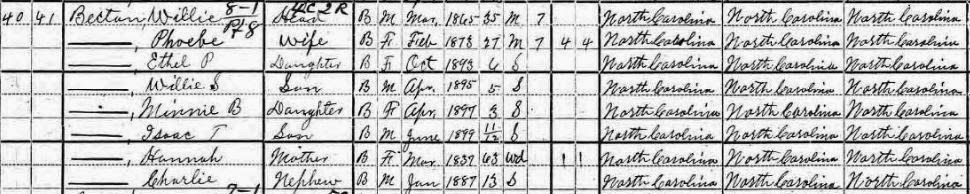 8-1 4C 2R
40 41 Bectan, Willie Head B M Mar 1865 35 M 7 North Carolina North Carolina North Carolina
P78
——, Phoebe Wife B F Feb 1873 27 M 7 4 4 North Carolina North Carolina North Carolina
——, Ethel P Daughter B F Oct 1893 6 S North Carolina North Carolina North Carolina
——, Willie S Son B M Apr 1895 5 S North Carolina North Carolina North Carolina
——, Minnie B Daughter B F Apr 1897 3 S North Carolina North Carolina North Carolina
——, Isaac T Son B M June 1899 11/12 S North Carolina North Carolina North Carolina
——, Hannah Mother B F Mar 1837 63 Wd 1 1 North Carolina North Carolina North Carolina
——, Charlie Nephew B M Jan 1887 13 S North Carolina North Carolina North Carolina